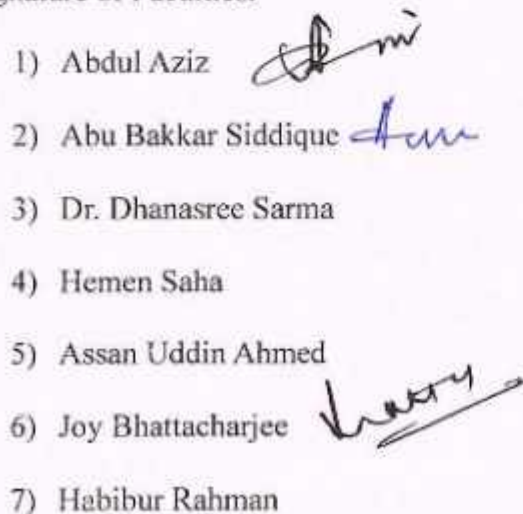 1) Abdul Aziz
2) Abu Bakkar Siddique
3) Dr. Dhanasree Sarma
4) Hemen Saha
5) Assan Uddin Ahmed
6) Joy Bhattacharjee
7) Habibur Rahman